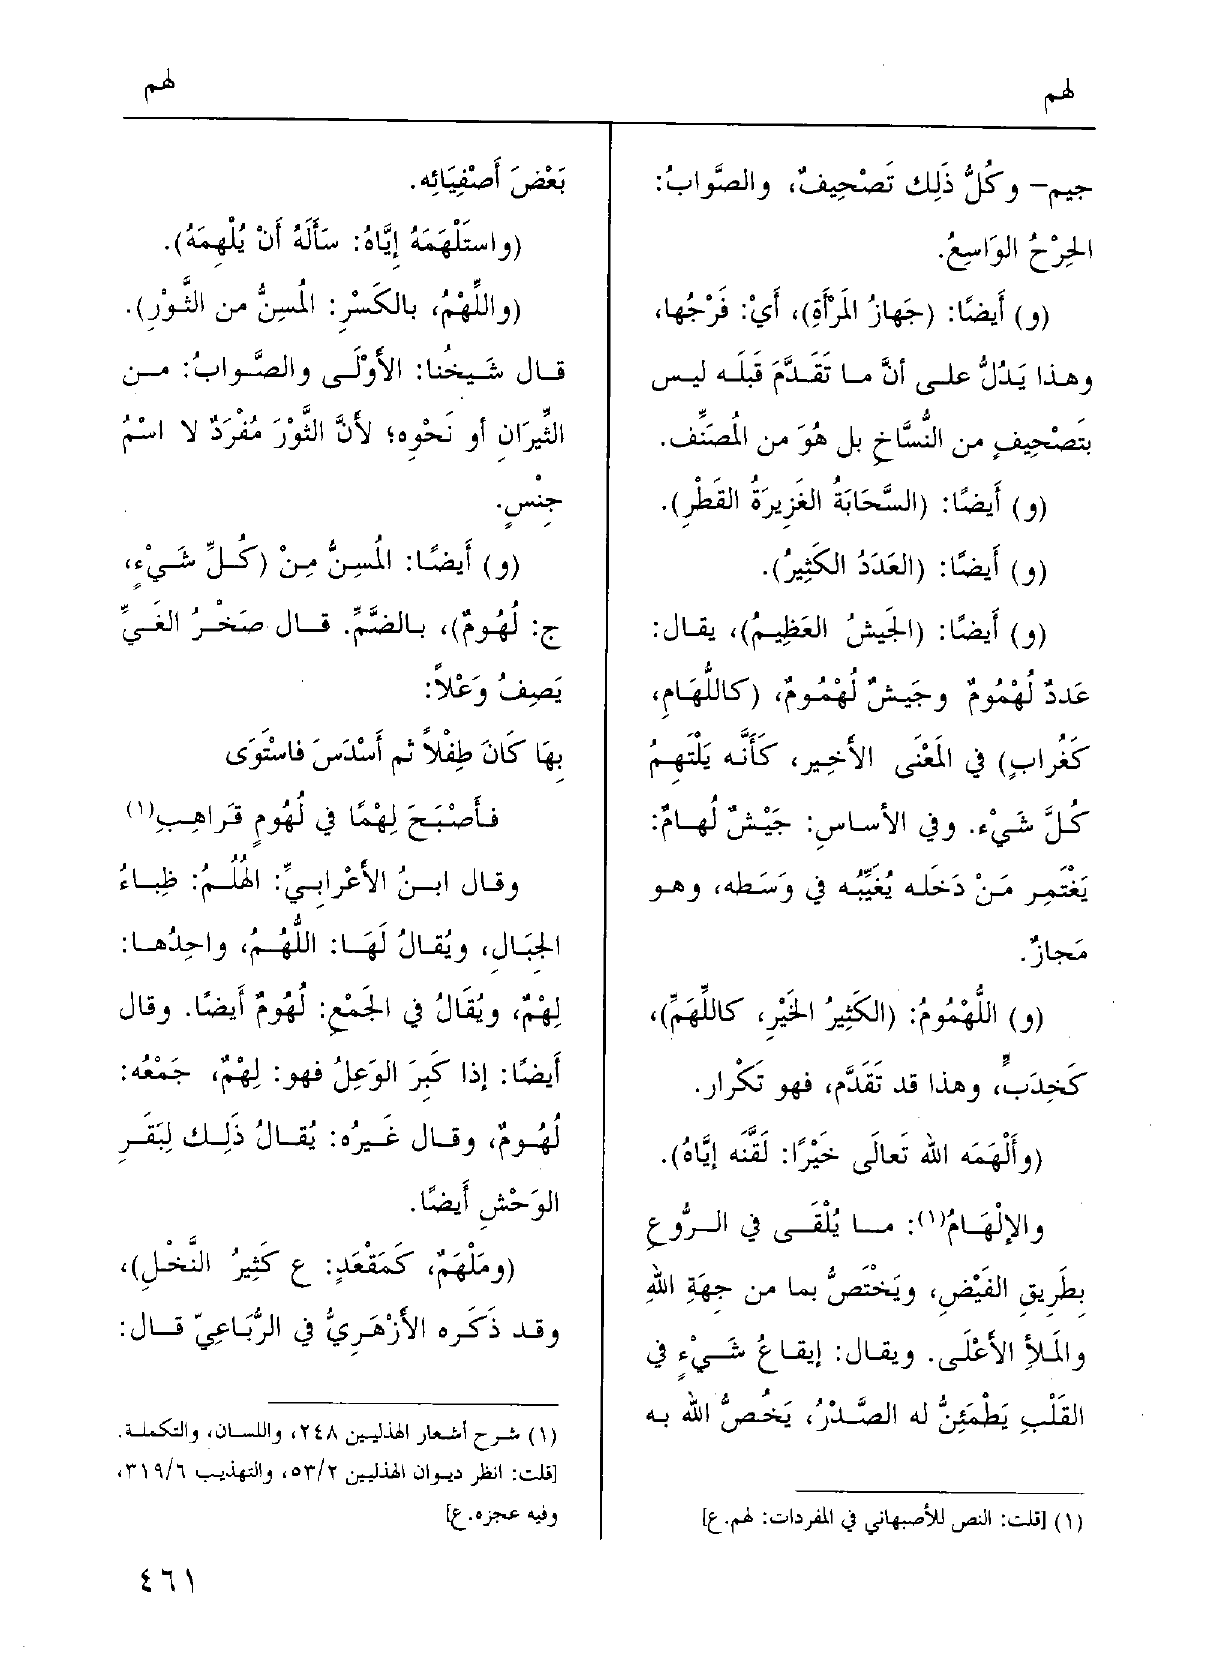 لهم
لهم
جيم- وكُلُّ ذَلِك تَصْحِيفٌ، والصَّوابُ:
الجِرْحُ الوَاسِعُ.
(و) أَيضًا: (جَهازُ المَرْأَةِ)، أَيْ: فَرْجُها،
وهذا يَدُلُّ على أنَّ ما تَقَدَّمَ قَبْلَه ليس
بتَصْحِيفٍ من النُّسَّاخِ بل هُوَ من المُصَنِّف.
(و) أَيضًا: (السَّحَابَةُ الغَزِيرَةُ القَطْرِ).
(و) أَيضًا: (العَدَدُ الكَثِيرُ).
(و) أَيضًا: (الجَيشُ العَظِيمُ)، يقال:
عَددٌ لُهْمُومٌ وجَيشٌ لُهْمُومٌ، (كاللُّهَامِ،
كَغُرابٍ) في المَعْنَى الأخيرِ، كَأَنَّه يَلْتَهِمُ
كُلَّ شَيْءٍ. وفي الأساسِ: جَيْشٌ لُهامٌ:
يَغْتَمِر مَنْ دَخَلَه يُغَيِّبُه في وَسَطه، وهو
مَجازٌ.
(و) اللُّهْمُومُ: (الكَثِيرُ الخَيْرِ، كاللِّهَمِّ)،
كَخِدَبٍّ، وهذا قد تَقَدَّم، فهو تَكْرار.
(وأَلْهَمَه الله تَعالَى خَيْرًا: لَقَّنَه إيَّاهُ).
والإلْهَامُ(١): ما يُلْقَى في الرُّوعِ
بطَرِيقِ الفَيْضِ، ويَخْتَصُّ بما من جِهَةِ اللهِ
والمَلأِ الأعْلَى. ويقال: إيقاعُ شَيْءٍ في
القَلْبِ يَطْمَئِنُّ له الصَّدْرُ، يَخُصُّ الله به
(١) [قلت: النص للأصبهاني في المفردات: لهم. ع]
بَعْضَ أَصْفِيَائِه.
(واستَلْهَمَهُ إيَّاهُ: سَأَلَهُ أَنْ يُلْهِمَهُ).
(واللِّهْمُ، بالكَسْرِ: المُسِنُّ من الثَّوْرِ).
قال شَيخُنا: الأوْلَى والصَّوابُ: من
الثِّيرَانِ أو نَحْوِه؛ لأنَّ الثَّوْرَ مُفْرَدٌ لا اسْمُ
جِنْسٍ.
(و) أَيضًا: المُسِنُّ مِنْ (كُلِّ شَيْءٍ،
ج: لُهُومٌ)، بالضَّمِّ. قال صَخْرُ الغَيِّ
يَصِفُ وَعْلاً:
بِهَا كَانَ طِفْلاً ثم أَسْدَسَ فاسْتَوَى
فأَصْبَحَ لِهْمًا في لُهُومٍ قَراهِبِ(١)
وقال ابنُ الأعْرابيِّ: الهُلُمُ: ظِباءُ
الجِبَالِ، ويُقالُ لَهَا: اللُّهُمُ، واحِدُها:
لِهْمٌ، ويُقَالُ في الجَمْعِ: لُهُومٌ أَيضًا. وقال
أَيضًا: إذا كَبِرَ الوَعِلُ فهو: لِهْمٌ، جَمْعُه:
لُهُومٌ، وقال غَيرُه: يُقالُ ذَلِك لبَقَرِ
الوَحْشِ أَيضًا.
(ومَلْهَمٌ، كَمَقْعَدٍ: ع كَثِيرُ النَّخْلِ)،
وقد ذَكَره الأَزْهَرِيُّ في الرُّبَاعِيّ قال:
(١) شرح أشعار الهذليين ٢٤٨، واللسان، والتكملة.
[قلت: انظر ديوان الهذليين ٥٣/٢، والتهذيب ٣١٩/٦،
وفيه عجزه. ع]
٤٦١